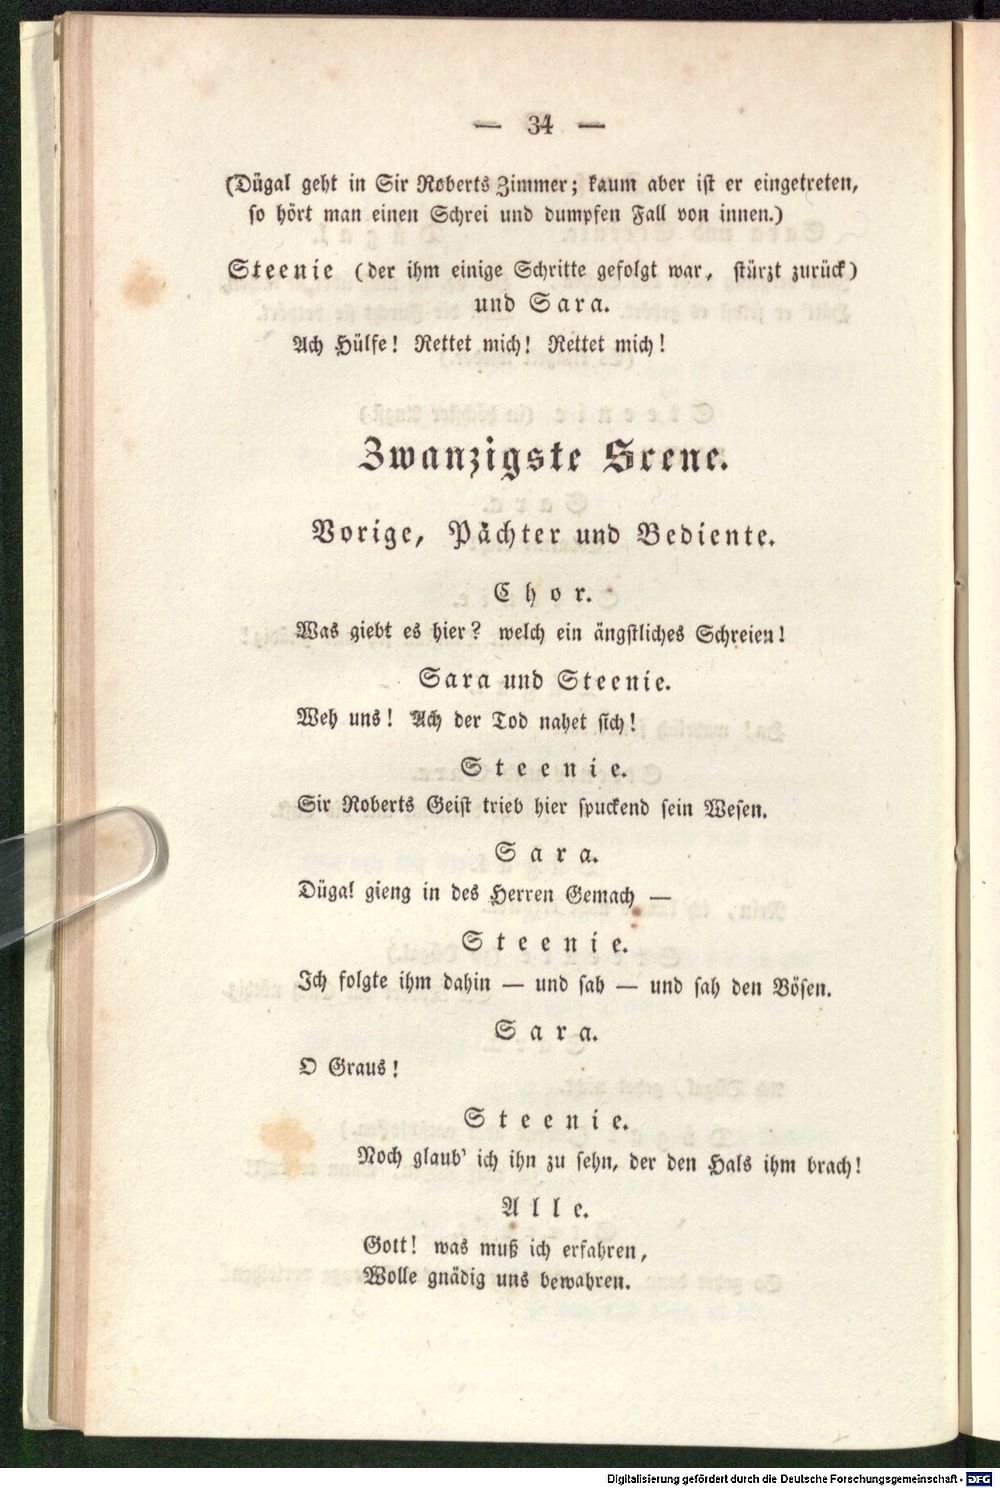 — 34 —
(Dügal geht in Sir Roberts Zimmer; kaum aber ist er eingetreten,
so hört man einen Schrei und dumpfen Fall von innen.)
Steenie (der ihm einige Schritte gefolgt war, stürzt zurück)
und Sara.
Ach Hülfe! Rettet mich! Rettet mich!
Zwanzigste Scene.
Vorige, Pächter und Bediente.
Chor.
Was giebt es hier? welch ein ängstliches Schreien!
Sara und Steenie.
Weh uns! Ach der Tod nahet sich!
Steenie.
Sir Roberts Geist trieb hier spuckend sein Wesen.
Sara.
Dügal gieng in des Herren Gemach —
Steenie.
Ich folgte ihm dahin — und sah — und sah den Bösen.
Sara.
O Graus!
Steenie.
Noch glaub' ich ihn zu sehn, der den Hals ihm brach!
Alle.
Gott! was muß ich erfahren,
Wolle gnädig uns bewahren.
Digitalisierung gefördert durch die Deutsche Forschungsgemeinschaft - DFG